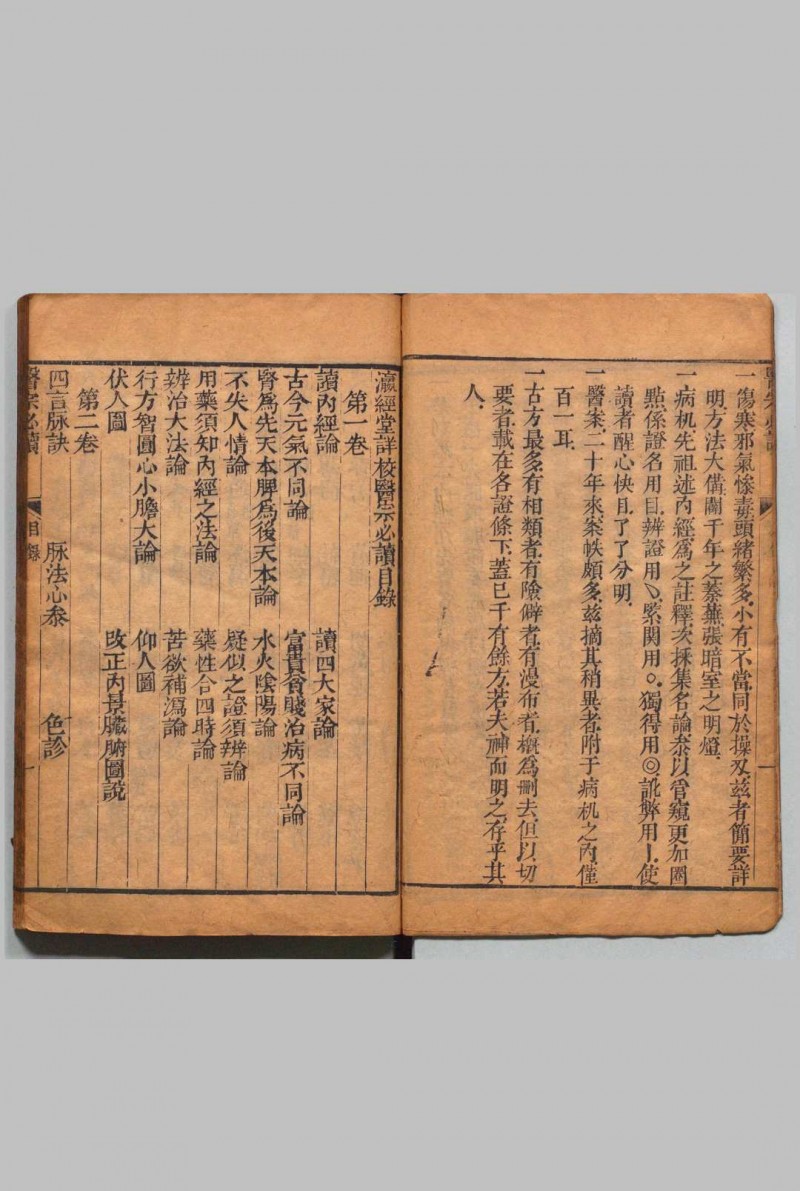 一傷寒邪氣慘毒頭緒繁多小有不當同於操刄茲者簡要詳
明方法大備闢千年之蓁蕪張暗室之明燈
一病机先祖述內經爲之註釋次採集名論叅以管窺更加圈
點係證名用目辨證用乀緊関用○獨得用◎訛弊用丨使
讀者醒心快目了了分明
一醫案二十年來案帙頗多茲摘其稍異者附于病机之內僅
百一耳
一古方最多有相類者有隂僻者有漫布者槪爲刪去但以切
要者載在各證條下蓋已千有餘方若夫神而明之存乎其
人
瀛經堂詳校醫宗必讀目錄
第一卷
讀內經論 讀四大家論
古今元氣不同論 富貴貧賤治病不同論
腎爲先天本脾爲後天本論 水火陰陽論
不失人情論 疑似之證須辨論
用藥須知內經之法論 藥性合四時論
辨治大法論 苦欲補瀉論
行方智圓心小膽大論 仰人圖
伏人圖 改正內景臟腑圖說
第二卷
四言脉訣 脉法心叅 色診
醫宗必讀 目錄 一